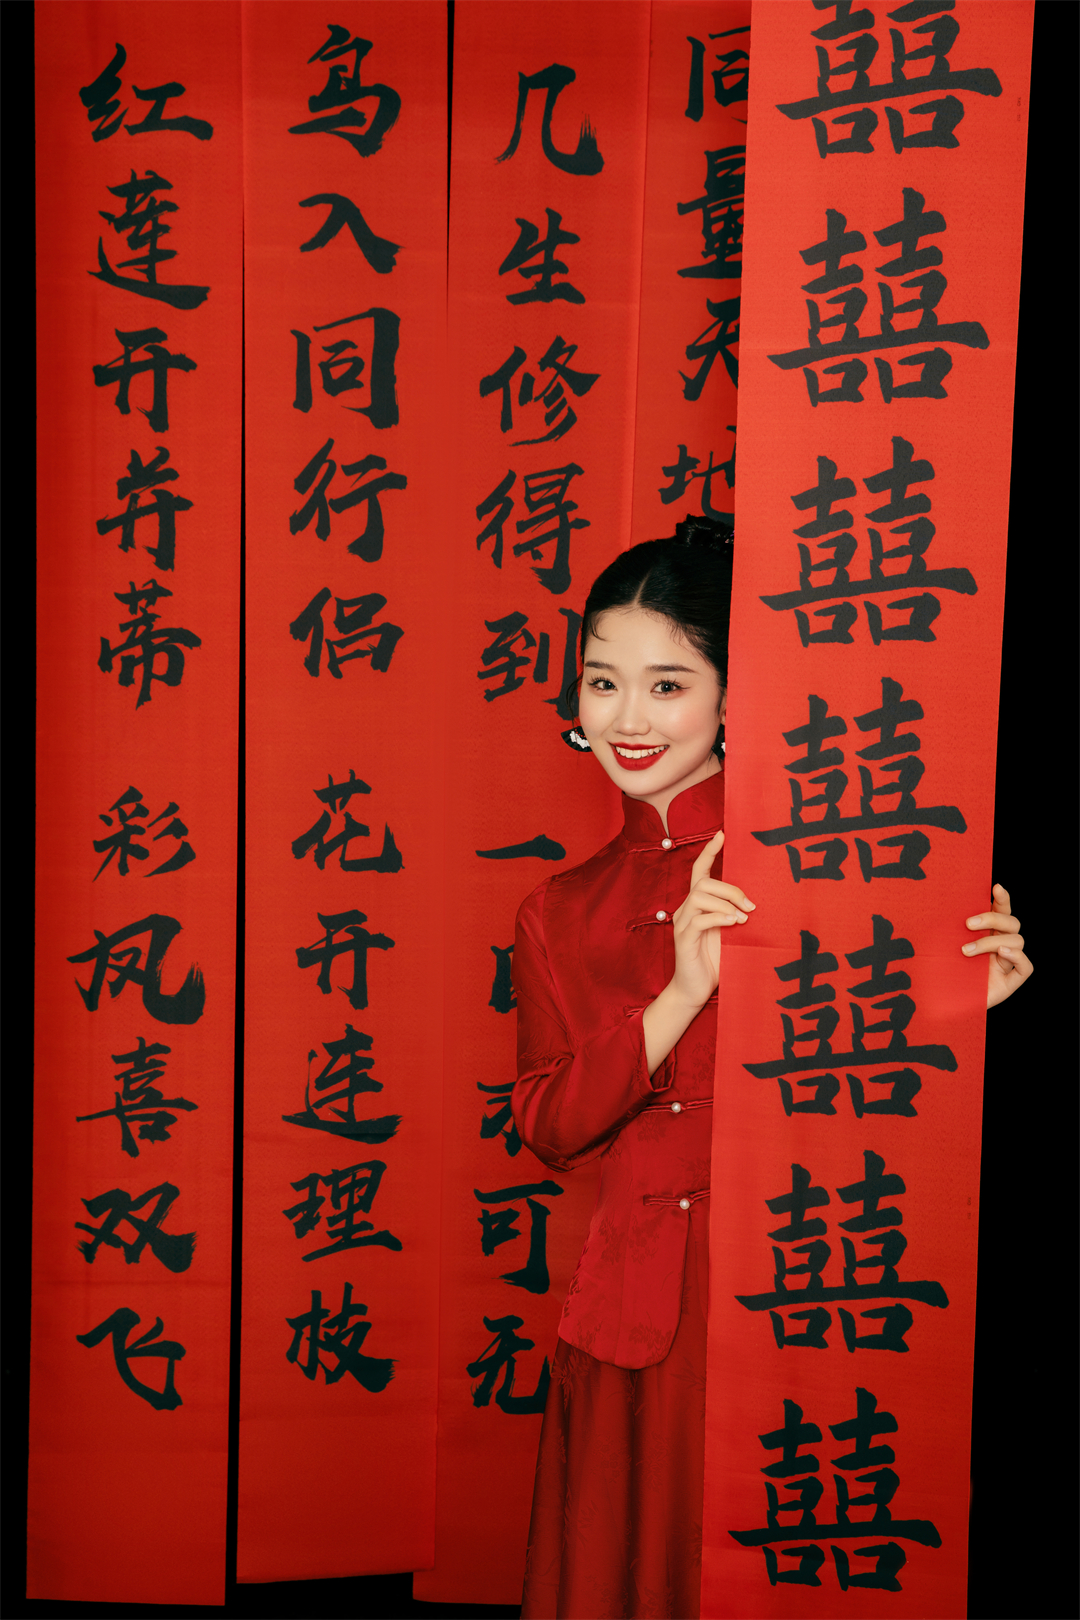 囍囍囍囍囍囍囍
同量天地
几生修得到 一日不可无
鸟入同行侣 花开连理枝
红蓮开并蒂 彩凤喜双飞